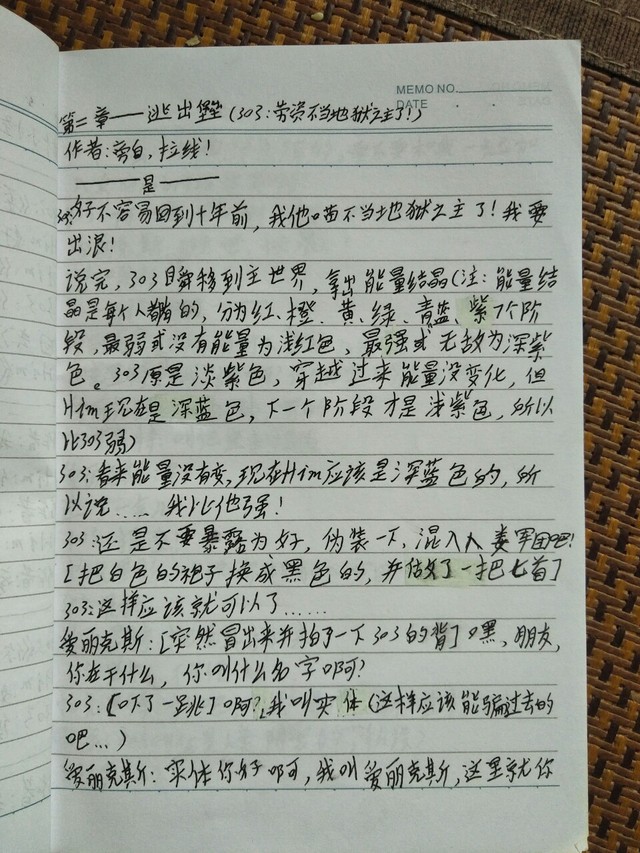 MEMO NO.
DATE
第二章——逃出堡垒(303:劳资不当地狱之主了!)
作者:旁白,拉线!
——是——
303:好不容易回到十年前,我他喵不当地狱之主了!我要
出浪!
说完,303瞬移到主世界,拿出能量结晶(注:能量结
晶是每个人都有的,分为红、橙、黄、绿、青蓝、紫7个阶
段,最弱或没有能量为浅红色,最强或无敌为深紫
色。303原是淡紫色,穿越过来能量没变化,但
Him现在是深蓝色,下一个阶段才是浅紫色,所以
比303弱)
303:看来能量没有变,现在Him应该是深蓝色的,所
以说……我比他强!
303:还是不要暴露为好,伪装一下,混入人类军团吧!
[把白色的袍子换成黑色的,并佔了一把匕首]
303:这样应该就可以了……
爱丽克斯:[突然冒出来并拍了一下303的背]嘿,朋友,
你在干什么,你叫什么名字啊?
303:[吓了一跳]啊?我叫实体(这样应该能骗过去的
吧…)
爱丽克斯:实体你好啊,我叫爱丽克斯,这里就你